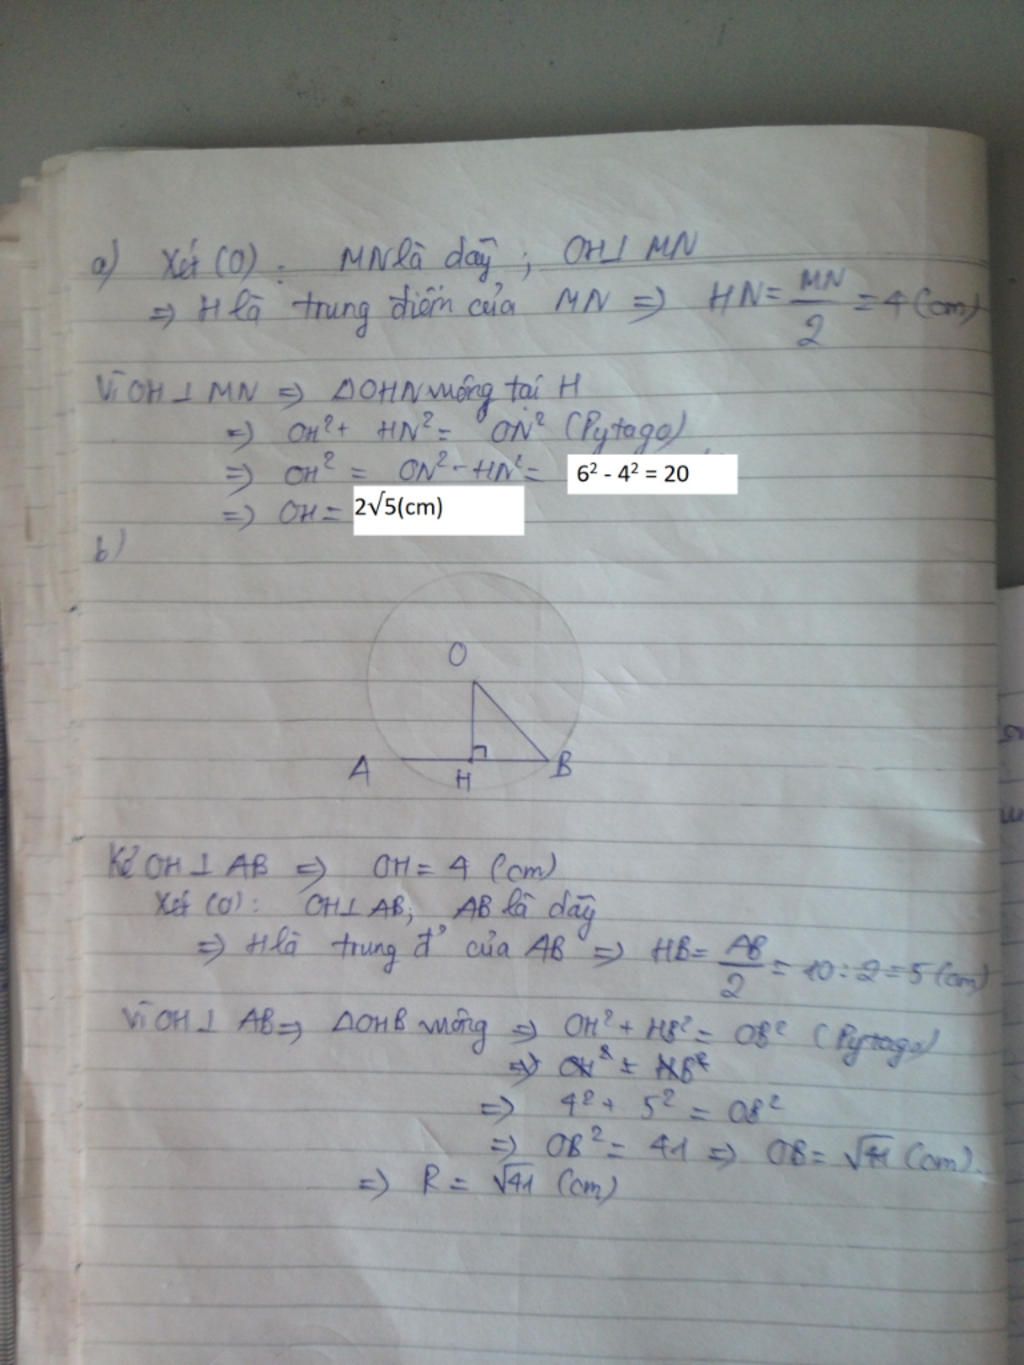 a) Xét (O): MN là dây; OH⊥MN
=> H là trung điểm của MN => HN = MN/2 = 4 (cm)
Vì OH⊥MN => ΔOHN vuông tại H
=> OH² + HN² = ON² (Pytago)
=> OH² = ON² - HN² = 6² - 4² = 20
=> OH = 2√5(cm)
b)
O
A H B
Kẻ OH⊥AB => OH = 4 (cm)
Xét (O): OH⊥AB; AB là dây
=> H là trung đ' của AB => HB = AB/2 = 10:2 = 5 (cm)
Vì OH⊥AB => ΔOHB vuông => OH² + HB² = OB² (Pytago)
=> OH² = HB²
=> 4² + 5² = OB²
=> OB² = 41 => OB = √41 (cm).
=> R = √41 (cm)